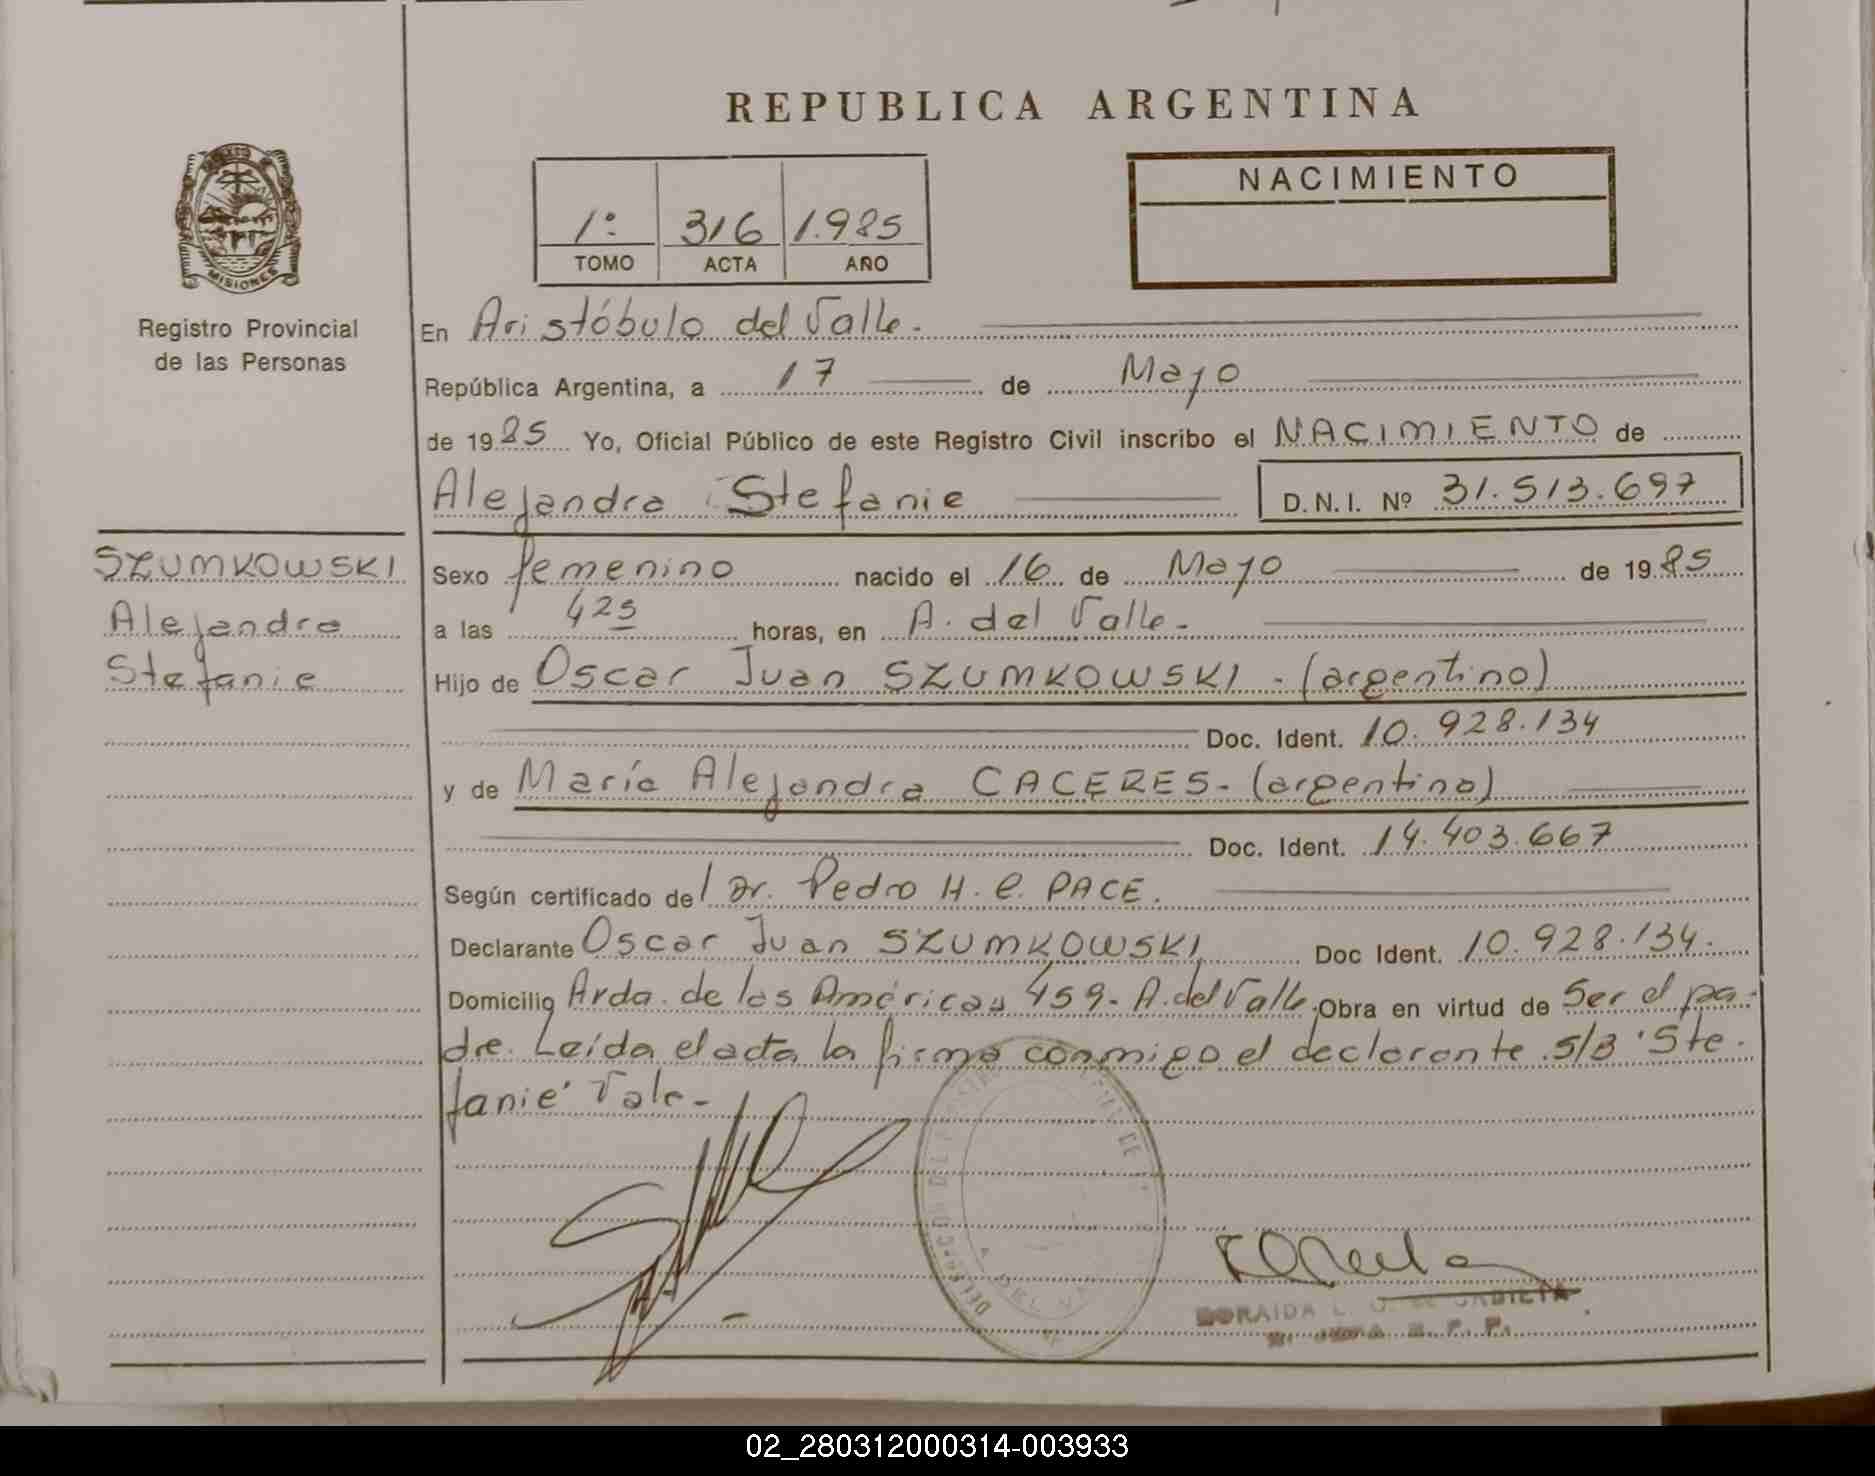 REPUBLICA ARGENTINA
NACIMIENTO
1º 316 1.985
TOMO ACTA AÑO
MISIONES
Registro Provincial
de las Personas
En Aristóbulo del Valle.
República Argentina, a 17 de Mayo
de 1985 Yo, Oficial Público de este Registro Civil inscribo el NACIMIENTO de
Alejandra Stefanie D.N.I. Nº 31.513.697
SZUMKOWSKI
Alejandra
Stefanie
Sexo femenino nacido el 16 de Mayo de 1985
a las 425 horas, en A. del Valle.-
Hijo de Oscar Juan SZUMKOWSKI.- (argentino)
Doc. Ident. 10.928.134
y de María Alejandra CACERES.- (argentina)
Doc. Ident. 14.403.667
Según certificado del Dr. Pedro H. C. PACE.
Declarante Oscar Juan SZUMKOWSKI Doc Ident. 10.928.134.
Domicilio Avda. de las Américas 459.- A. del Valle. Obra en virtud de Ser el pa-
dre. Leída el acta, la firma conmigo el declarante. S/B "Ste-
fanie" Vale.-
02_280312000314-003933